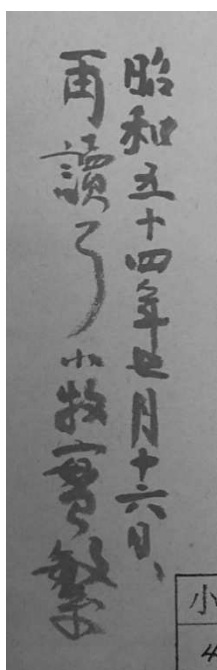 昭和五十四年七月十六日、
再讀了小牧實繁
小
4